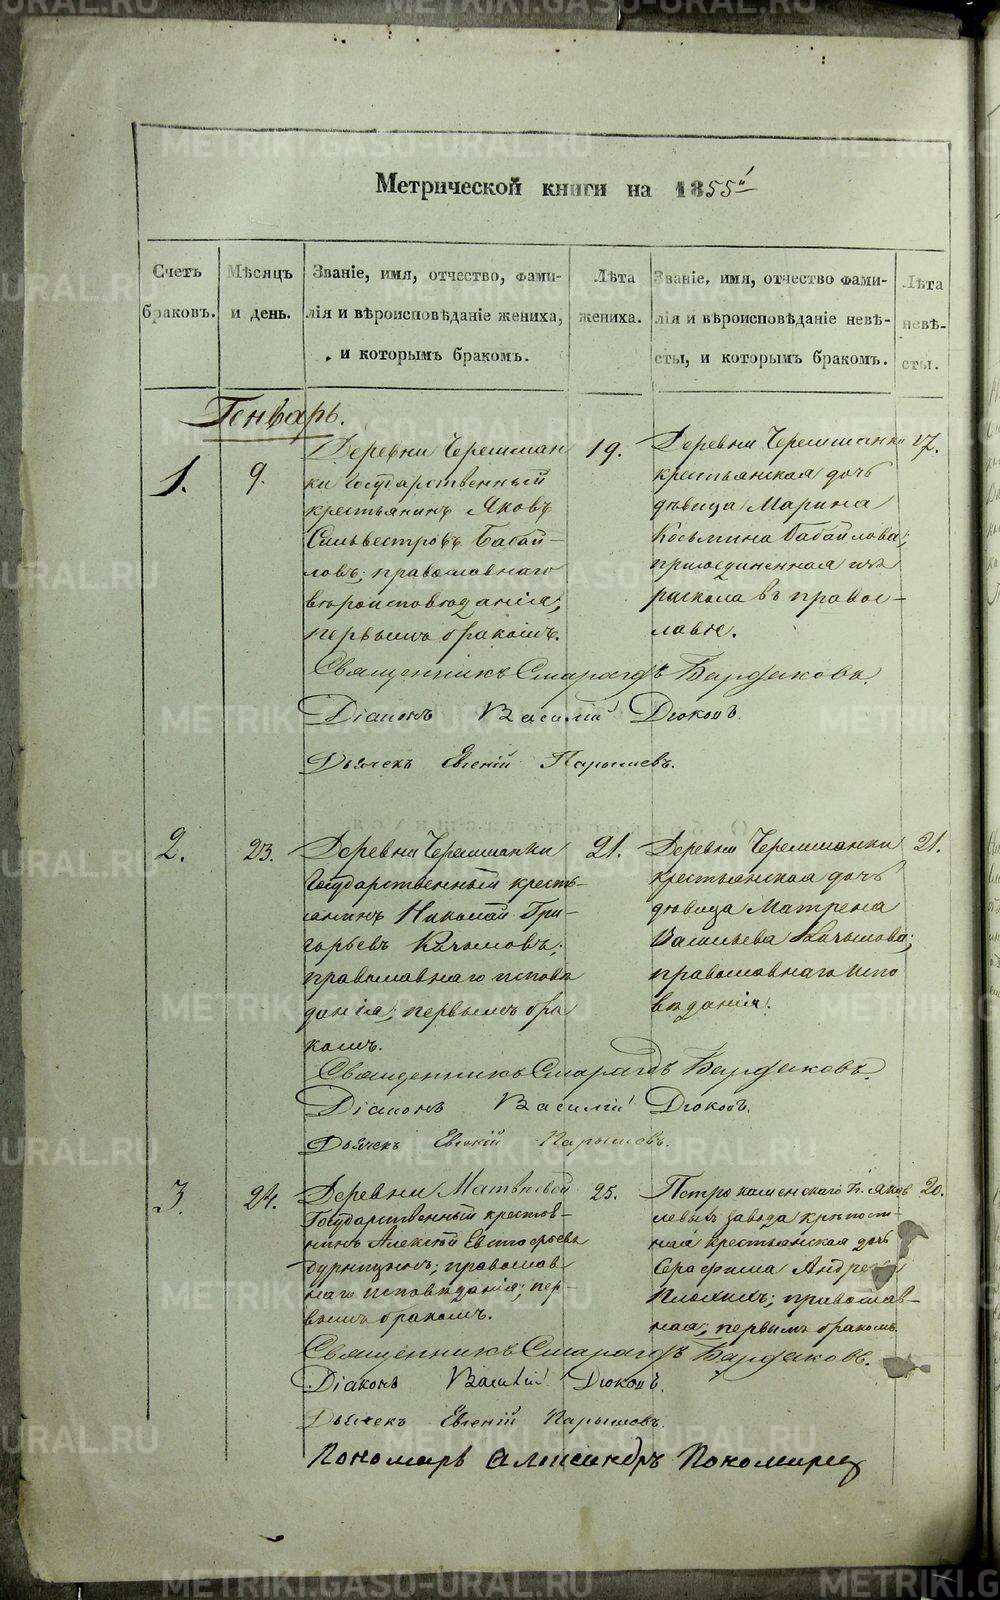 Метрической книги на 1855й
Счетъ браковъ.
Мѣсяцъ и день.
Званіе, имя, отчество, фами-
лія и вѣроисповѣданіе жениха,
и которымъ бракомъ.
Лѣта жениха.
Званіе, имя, отчество фами-
лія и вѣроисповѣданіе невѣ-
сты, и которымъ бракомъ.
Лѣта невѣ-
сты.
Генварь.
1.
9.
Деревни Черемшан
ки государственный
крестьянинъ Яковъ
Сильвестровъ Бабай-
ловъ; православнаго
вѣроисповѣданія;
первымъ бракомъ.
19.
Деревни Черемшанки
крестьянская дочь
дѣвица Марина
Косьмина Бабайлова;
присоединенная изъ
раскола въ правос-
лавіе.
17.
Священникъ Смарагдъ Бардаковъ.
Діаконъ Василій Дюковъ.
Дьячекъ Евгеній Парышевъ.
2.
23.
Деревни Черемшанки
Государственный кресть-
янинъ Николай Гри-
горьевъ Качымовъ;
православнаго исповѣ
данія; первымъ бра
комъ.
21.
Деревни Черемшанки
крестьянская дочь
дѣвица Матрена
Васильева Качымова;
православнаго испо
вѣданія.
21.
Священникъ Смарагдъ Бардаковъ.
Діаконъ Василій Дюковъ.
Дьячекъ Евгеній Парышевъ.
3.
24.
Деревни Матвѣевой
Государственный крестья-
нинъ Алексѣй Евстафьевъ
Бурнцынъ; православ
наго исповѣданія; пер-
вымъ бракомъ.
25.
Петрокаменскаго Г. Яков
левыхъ завода крѣпост-
ная крестьянская дочь
Серафима Андреева
Плохихъ; православ-
ная; первымъ бракомъ.
20.
Священникъ Смарагдъ Бардаковъ.
Діаконъ Василій Дюковъ.
Дьячекъ Евгеній Парышевъ.
Пономарь Александръ Пономарев
METRIKI.GASO-URAL.RU